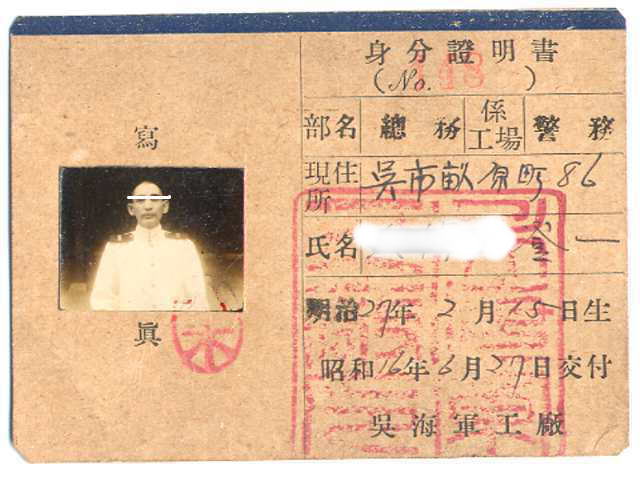 身分證明書
(No. 148)
部名 總務 係工場 警務
現住所 呉市畝原町86
氏名 一
明治27年2月15日生
昭和16年6月27日交付
呉海軍工廠
寫
眞